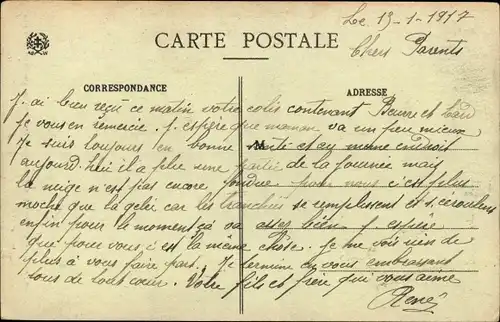 Le 13-1-1917
Chers Parents
CARTE POSTALE
CORRESPONDANCE
ADRESSE
J'ai bien reçu ce matin votre colis contenant Beurre et lard
Je vous en remercie. J'espère que maman va un peu mieux
Je suis toujours en bonne santé et au meme endroit
aujourd'hui il a plue une partie de la journée mais
la neige n'est pas encore fondue pour nous c'est plus
moche que la gelée car les tranchées se remplissent et s'ecroulent
enfin pour le moment ça va assez bien j'espère
que pour vous c'est la même chose. Je ne vois rien de
plus à vous faire part. Je termine en vous embrassant
tous de tout cœur. Votre fils et frère qui vous aime
René